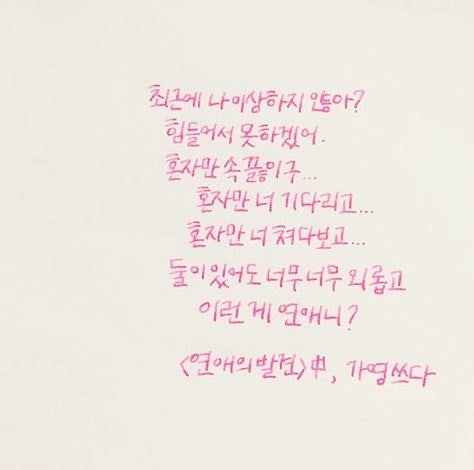 최근에 나 이상하지 않아?
힘들어서 못하겠어.
혼자만 속 끓이구...
혼자만 너 기다리고...
혼자만 너 쳐다보고...
둘이 있어도 너무너무 외롭고
이런 게 연애니?
<연애의 발견>中, 가영쓰다